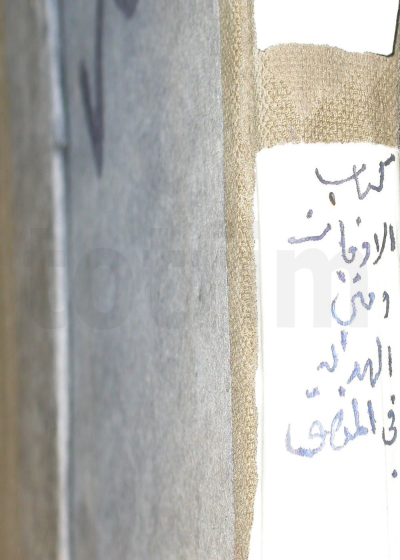 كتاب
الاوقات
ومتن
الهداية
في المنطق